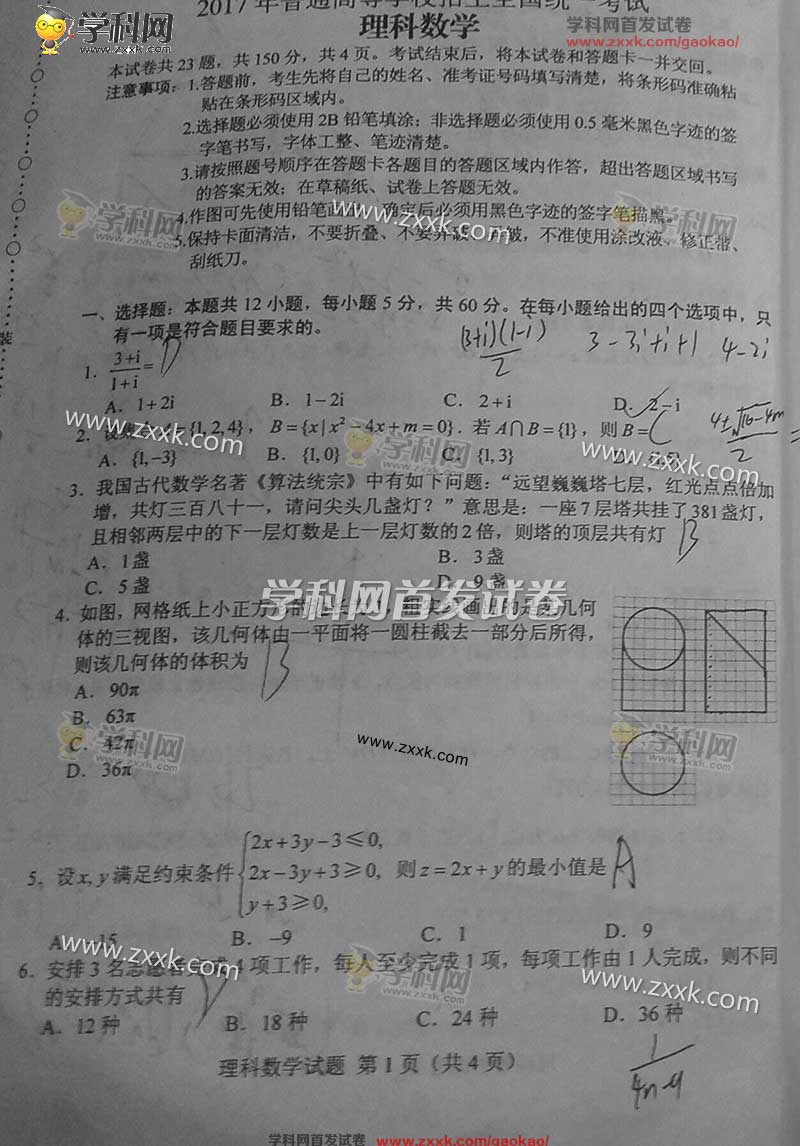 2017年普通高等学校招生全国统一考试
学科网首发试卷
www.zxxk.com/gaokao/
学科网
ZXXK.COM
理科数学
本试卷共23题，共150分，共4页。考试结束后，将本试卷和答题卡一并交回。
注意事项：1.答题前，考生先将自己的姓名、准考证号码填写清楚，将条形码准确粘
贴在条形码区域内。
2.选择题必须使用2B铅笔填涂；非选择题必须使用0.5毫米黑色字迹的签
字笔书写，字体工整、笔迹清楚。
3.请按照题号顺序在答题卡各题目的答题区域内作答，超出答题区域书写
的答案无效；在草稿纸、试卷上答题无效。
4.作图可先使用铅笔画出，确定后必须用黑色字迹的签字笔描黑。
5.保持卡面清洁，不要折叠、不要弄破、弄皱，不准使用涂改液、修正带、
刮纸刀。
学科网
ZXXK.COM
学科网
ZXXK.COM
www.zxxk.com
装
一、选择题：本题共12小题，每小题5分，共60分。在每小题给出的四个选项中，只
有一项是符合题目要求的。
(3+i)(1-i)/2 3-3i+i+1 4-2i
1. (3+i)/(1+i)= D
A. 1+2i B. 1-2i C. 2+i D. 2-i
2. 设集合A={1,2,4}，B={x|x²-4x+m=0}. 若A∩B={1}，则B= C
(4±√(16-4m))/2 =
A. {1,-3} B. {1,0} C. {1,3} D. {1,5}
www.zxxk.com
学科网
www.zxxk.com
3. 我国古代数学名著《算法统宗》中有如下问题：“远望巍巍塔七层，红光点点倍加
增，共灯三百八十一，请问尖头几盏灯？”意思是：一座7层塔共挂了381盏灯，
且相邻两层中的下一层灯数是上一层灯数的2倍，则塔的顶层共有灯 B
A. 1盏 B. 3盏
C. 5盏 D. 9盏
学科网首发试卷
4. 如图，网格纸上小正方形的边长为1，粗实线画出的是某几何
体的三视图，该几何体由一平面将一圆柱截去一部分后所得，
则该几何体的体积为 B
A. 90π
B. 63π
C. 42π
D. 36π
学科网
ZXXK.COM
www.zxxk.com
学科网
ZXXK.COM
5. 设x,y满足约束条件 {2x+3y-3≤0, 2x-3y+3≥0, y+3≥0, 则z=2x+y的最小值是 A
A. -15 B. -9 C. 1 D. 9
www.zxxk.com
学科网
www.zxxk.com
6. 安排3名志愿者完成4项工作，每人至少完成1项，每项工作由1人完成，则不同
的安排方式共有 D
A. 12种 B. 18种 C. 24种 D. 36种
理科数学试题 第1页（共4页）
学科网首发试卷 www.zxxk.com/gaokao/